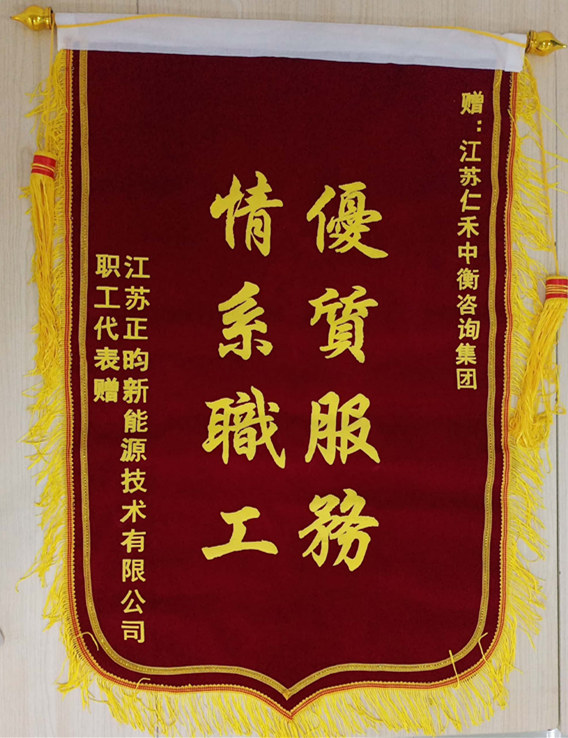 赠：江苏仁禾中衡咨询集团
優質服務
情系職工
江苏正昀新能源技术有限公司
职工代表赠